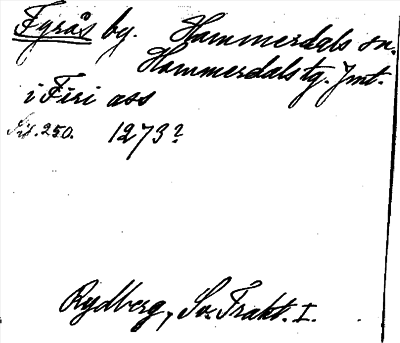 Fyrås by. Hammerdals sn.
Hammerdals tg. Jmt.
i Firi ass
sid. 250. 1273?
Rydberg, Sv. Trakt. I.